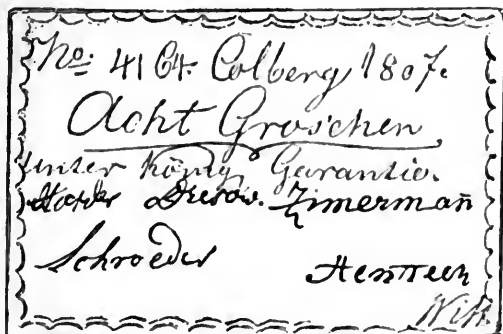 No: 4164. Colberg 1807.
Acht Groschen
unter König Garantie.
Dresow. Zimerman̄
Schroeder